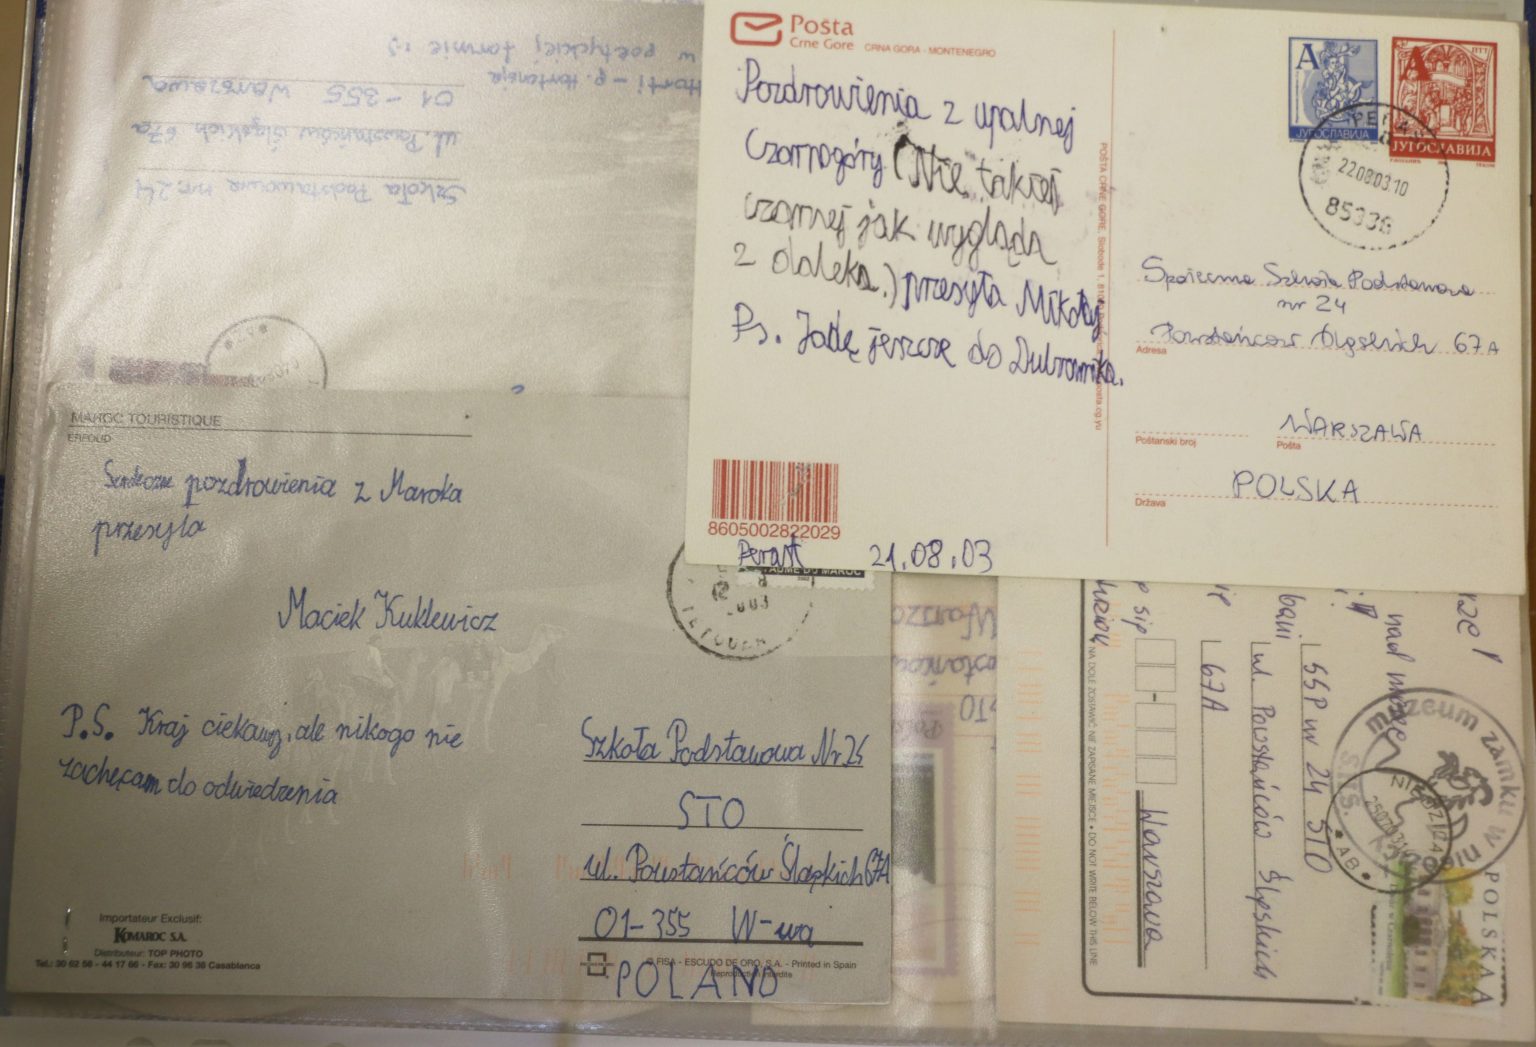 Posta
Crne Gore CRNA GORA - MONTENEGRO
Pozdrowienia z upalnej
Czarnogóry (Nie takiej
czarnej jak wygląda
z daleka.) przesyła Mikołaj
Ps. Jadę jeszcze do Dubrownika.
8605002822029
Perast 21.08.03
A
ЈУГОСЛАВИЈА
A
ЈУГОСЛАВИЈА
22.08.03.10
85336
Społeczna Szkoła Podstawowa
nr 24
Powstańców Śląskich 67A
Adresa
WARSZAWA
Poštanski broj Pošta
POLSKA
Država
w poetyckiej formie :)
Horti - p. Hortensja
01-355 Warszawa
ul. Powstańców Śląskich 67a
Szkoła Podstawowa nr. 24
MAROC TOURISTIQUE
ERFOUD
Serdeczne pozdrowienia z Maroka
przesyła
Maciek Kuklewicz
P.S. Kraj ciekawy, ale nikogo nie
zachęcam do odwiedzenia
Szkoła Podstawowa Nr.24
STO
ul. Powstańców Śląskich 67A
01-355 W-wa
POLAND
Importateur Exclusif:
KOMAROC S.A.
Distributeur: TOP PHOTO
Tel.: 30 62 56 - 44 17 66 - Fax: 30 96 38 Casablanca
© FISA - ESCUDO DE ORO, S.A. - Printed in Spain
Reproduction interdite
nad morze
SSP nr 24 STO
ul. Powstańców Śląskich
67A
Warszawa
NA DOLE ZOSTAWIĆ NIE ZAPISANE MIEJSCE • DO NOT WRITE BELOW THIS LINE
muzeum zamku w
POLSKA